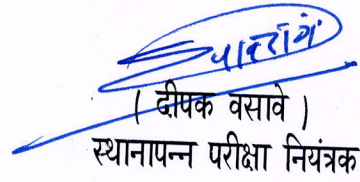 ( दीपक वसावे )
स्थानापन्न परीक्षा नियंत्रक